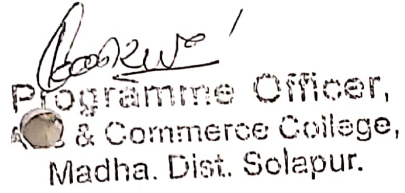 Programme Officer,
& Commerce College,
Madha. Dist. Solapur.